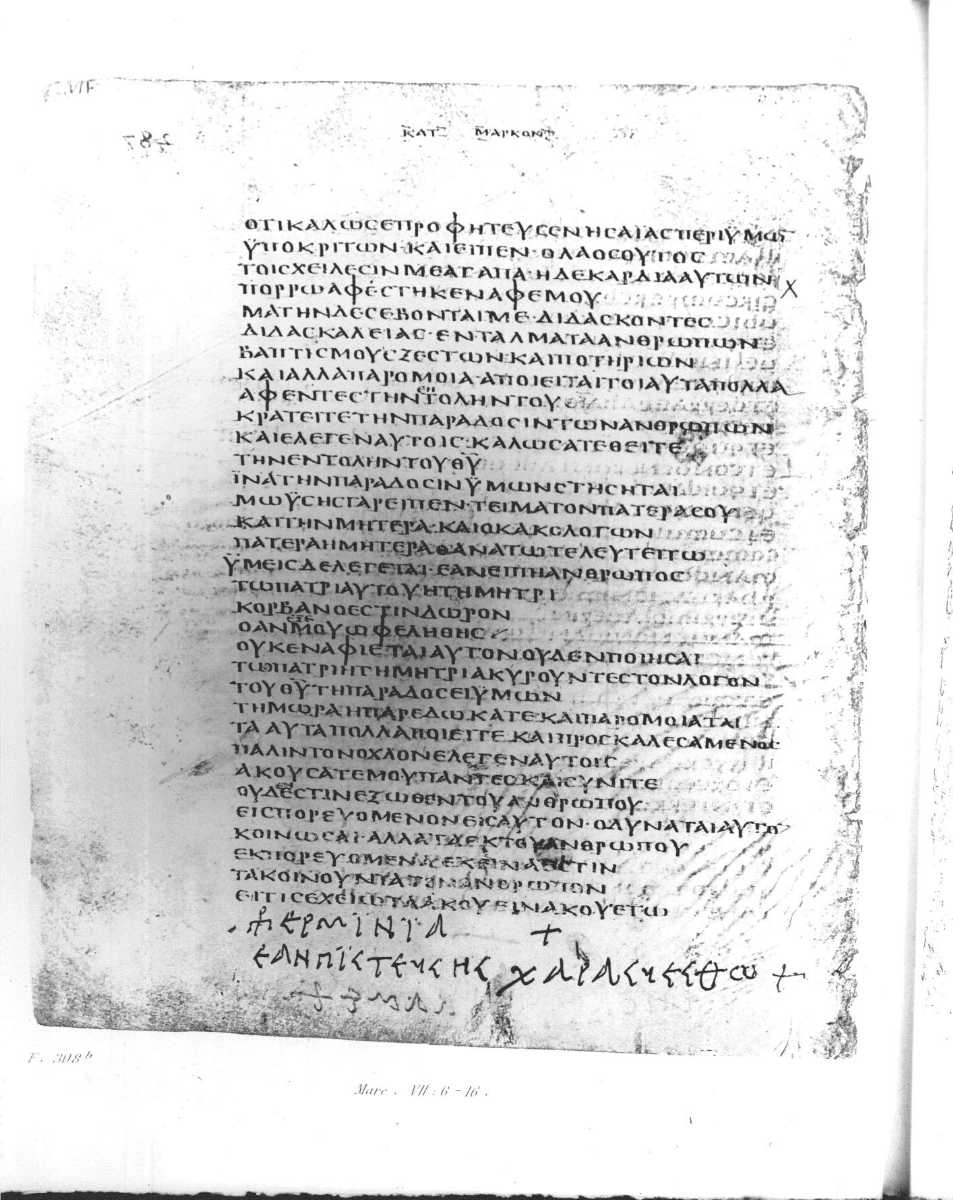 VII
287
ΚΑΤ ΜΑΡΚΟΝ
ΟΤΙΚΑΛΩϹΕΠΡΟΦΗΤΕΥϹΕΝΗϹΑΙΑϹΠΕΡΙΫΜΩ̅
ΫΠΟΚΡΙΤΩΝ·ΚΑΙΕΙΠΕΝ·ΟΛΑΟϹΟΥΤΟϹ
ΤΟΙϹΧΕΙΛΕϹΙΝΜΕΑΓΑΠΑ·ΗΔΕΚΑΡΔΙΑΑΥΤΩΝ
ΠΟΡΡΩΑΦΕϹΤΗΚΕΝΑΦΕΜΟΥ
ΜΑΤΗΝΔΕϹΕΒΟΝΤΑΙΜΕ·ΔΙΔΑϹΚΟΝΤΕϹ
ΔΙΔΑϹΚΑΛΕΙΑϹ·ΕΝΤΑΛΜΑΤΑΑΝΘΡΩΠΩΝ
ΒΑΠΤΙϹΜΟΥϹΞΕϹΤΩΝ·ΚΑΙΠΟΤΗΡΙΩΝ
ΚΑΙΑΛΛΑΠΑΡΟΜΟΙΑ·ΑΠΟΙΕΙΤΑΙΤΟΙΑΥΤΑΠΟΛΛΑ
ΑΦΕΝΤΕϹΤΗΝΕΝΤΟΛΗΝΤΟΥΘΥ
ΚΡΑΤΕΙΤΕΤΗΝΠΑΡΑΔΟϹΙΝΤΩΝΑΝΘΡΩΠΩΝ
ΚΑΙΕΛΕΓΕΝΑΥΤΟΙϹ·ΚΑΛΩϹΑΤΕΘΕΙΤΕ
ΤΗΝΕΝΤΟΛΗΝΤΟΥΘΥ̅
ΪΝΑΤΗΝΠΑΡΑΔΟϹΙΝΫΜΩΝϹΤΗϹΗΤΑΙ
ΜΩΫϹΗϹΓΑΡΕΙΠΕΝ·ΤΕΙΜΑΤΟΝΠΑΤΕΡΑϹΟΥ
ΚΑΙΤΗΝΜΗΤΕΡΑ·ΚΑΙΟΚΑΚΟΛΟΓΩΝ
ΠΑΤΕΡΑΗΜΗΤΕΡΑΘΑΝΑΤΩΤΕΛΕΥΤΕΙΤΩ
ΫΜΕΙϹΔΕΛΕΓΕΤΑΙ·ΕΑΝΕΙΠΗΑΝΘΡΩΠΟϹ
ΤΩΠΑΤΡΙΑΥΤΟΥΗΤΗΜΗΤΡΙ
ΚΟΡΒΑΝΟΕϹΤΙΝΔΩΡΟΝ
ΟΑΝΕΞΕΜΟΥΩΦΕΛΗΘΗϹ
ΟΥΚΕΝΑΦΙΕΤΑΙΑΥΤΟΝΟΥΔΕΝΠΟΙΗϹΑΙ
ΤΩΠΑΤΡΙΗΤΗΜΗΤΡΙΑΚΥΡΟΥΝΤΕϹΤΟΝΛΟΓΟΝ
ΤΟΥΘΥ̅ΤΗΠΑΡΑΔΟϹΕΙΫΜΩΝ
ΤΗΜΩΡΑΗΠΑΡΕΔΩΚΑΤΕ·ΚΑΙΠΑΡΟΜΟΙΑΤΑΙ
ΤΑΑΥΤΑΠΟΛΛΑΠΟΙΕΙΤΕ·ΚΑΙΠΡΟϹΚΑΛΕϹΑΜΕΝΟϹ
ΠΑΛΙΝΤΟΝΟΧΛΟΝΕΛΕΓΕΝΑΥΤΟΙϹ
ΑΚΟΥϹΑΤΕΜΟΥΠΑΝΤΕϹΚΑΙϹΥΝΙΤΕ
ΟΥΔΕΝΕϹΤΙΝΕΞΩΘΕΝΤΟΥΑΝΘΡΩΠΟΥ
ΕΙϹΠΟΡΕΥΟΜΕΝΟΝΕΙϹΑΥΤΟΝ·ΟΔΥΝΑΤΑΙΑΥΤΟ̅
ΚΟΙΝΩϹΑΙ·ΑΛΛΑΤΑΕΚΤΟΥΑΝΘΡΩΠΟΥ
ΕΚΠΟΡΕΥΟΜΕΝΑΕΚΕΙΝΑΕϹΤΙΝ
ΤΑΚΟΙΝΟΥΝΤΑΤΟΝΑΝΘΡΩΠΟΝ
ΕΙΤΙϹΕΧΕΙΩΤΑΑΚΟΥΕΙΝΑΚΟΥΕΤΩ
ερμΪΝΙΑ +
ΕΑΝΠΪϹΤΕΥϹΗϹ ΧΑΡΑϹΥΕϹΘω +
F. 308b
Marc. VII : 6 - 16.